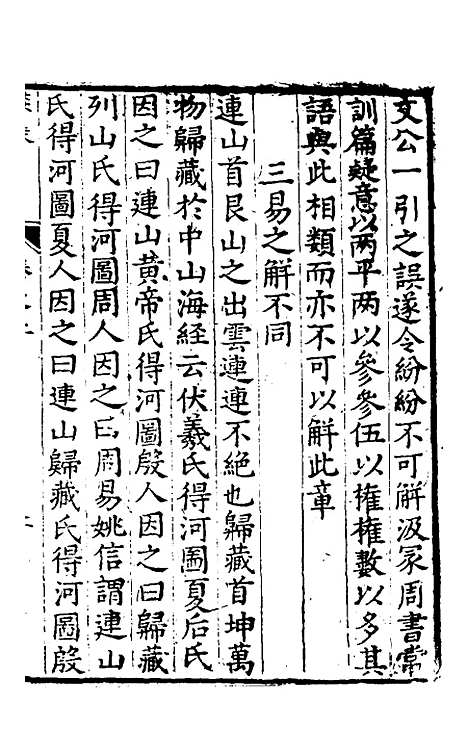 文公一引之誤遂令紛紛不可解汲冢周書常
訓篇疑意以两平两以參參伍以権権數以多其
語與此相類而亦不可以解此章
三易之解不同
連山首艮山之出雲連連不絕也歸藏首坤萬
物歸藏於中山海経云伏羲氏得河圖夏后氏
因之曰連山黄帝氏得河圖殷人因之曰歸藏
列山氏得河圖周人因之曰周易姚信謂連山
氏得河圖夏人因之曰連山歸藏氏得河圖殷